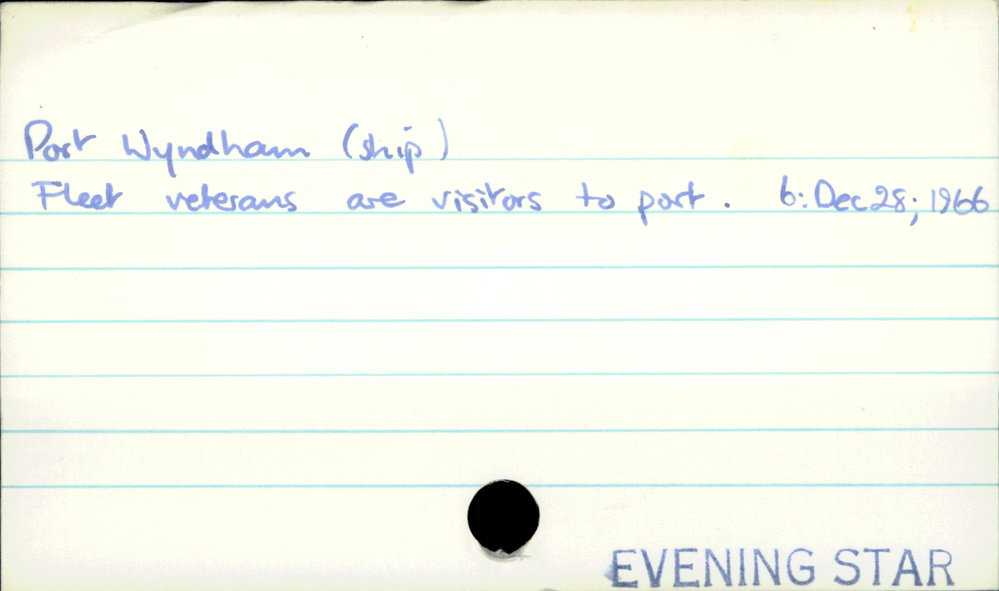 Port Wyndham (ship)
Fleet veterans are visitors to port. 6: Dec 28; 1966
EVENING STAR